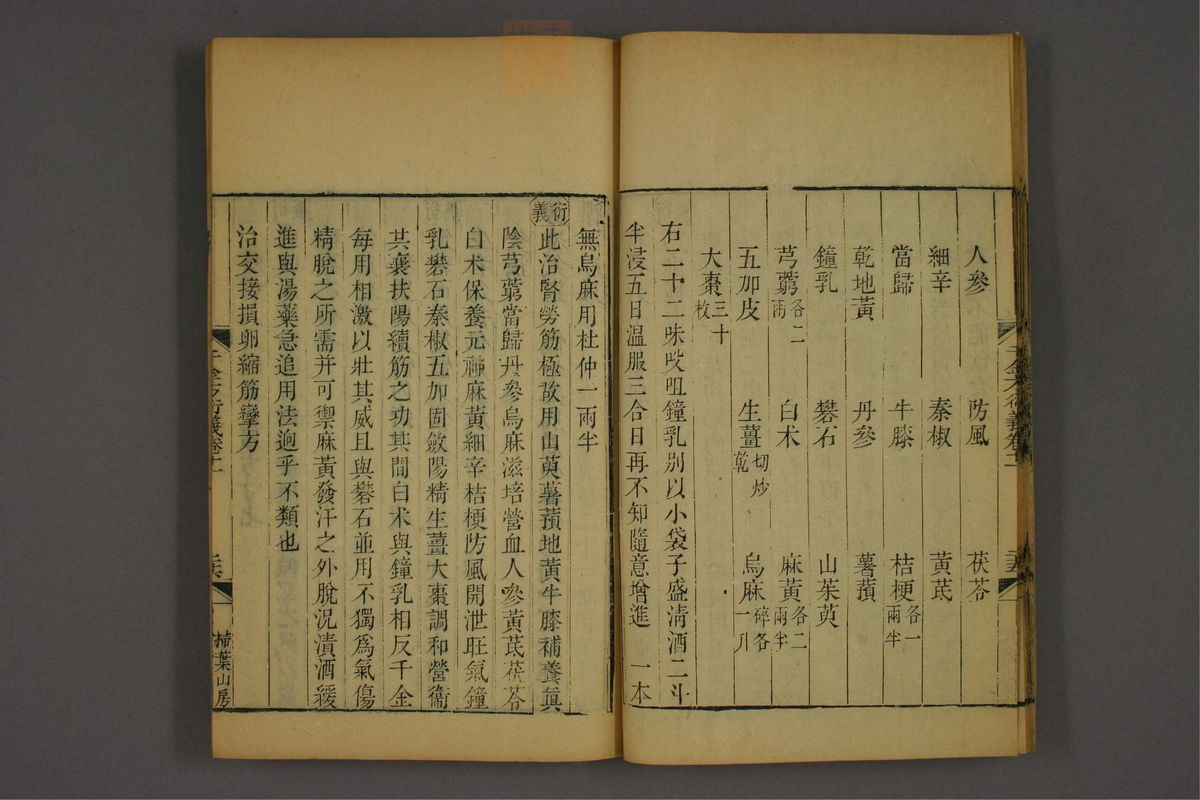 人參 防風 茯苓
細辛 秦椒 黃茋
當歸 牛膝 桔梗各一兩半
乾地黃 丹參 薯蕷
鐘乳 礬石 山茱萸
芎藭各二兩 白朮 麻黃各二兩半
五加皮 生薑切炒乾 烏麻碎各一升
大棗三十枚
右二十二味㕮咀鐘乳别以小袋子盛清酒二斗
半浸五日温服三合日再不知隨意增進 一本
無烏麻用杜仲一兩半
衍義 此治腎勞筋極故用山萸薯蕷地黃牛膝補養眞
陰芎藭當歸丹參烏麻滋培營血人參黃茋茯苓
白朮保養元神麻黃細辛桔梗防風開泄旺氣鐘
乳礬石秦椒五加固斂陽精生薑大棗調和營衞
其襄扶陽續筋之功其間白朮與鐘乳相反千金
每用相激以壯其威且與礬石並用不獨爲氣傷
精脫之所需并可禦麻黃發汗之外脫況漬酒緩
進與湯藥急追用法迥乎不類也
治交接損卵縮筋攣方
千金方衍義卷十一
掃葉山房